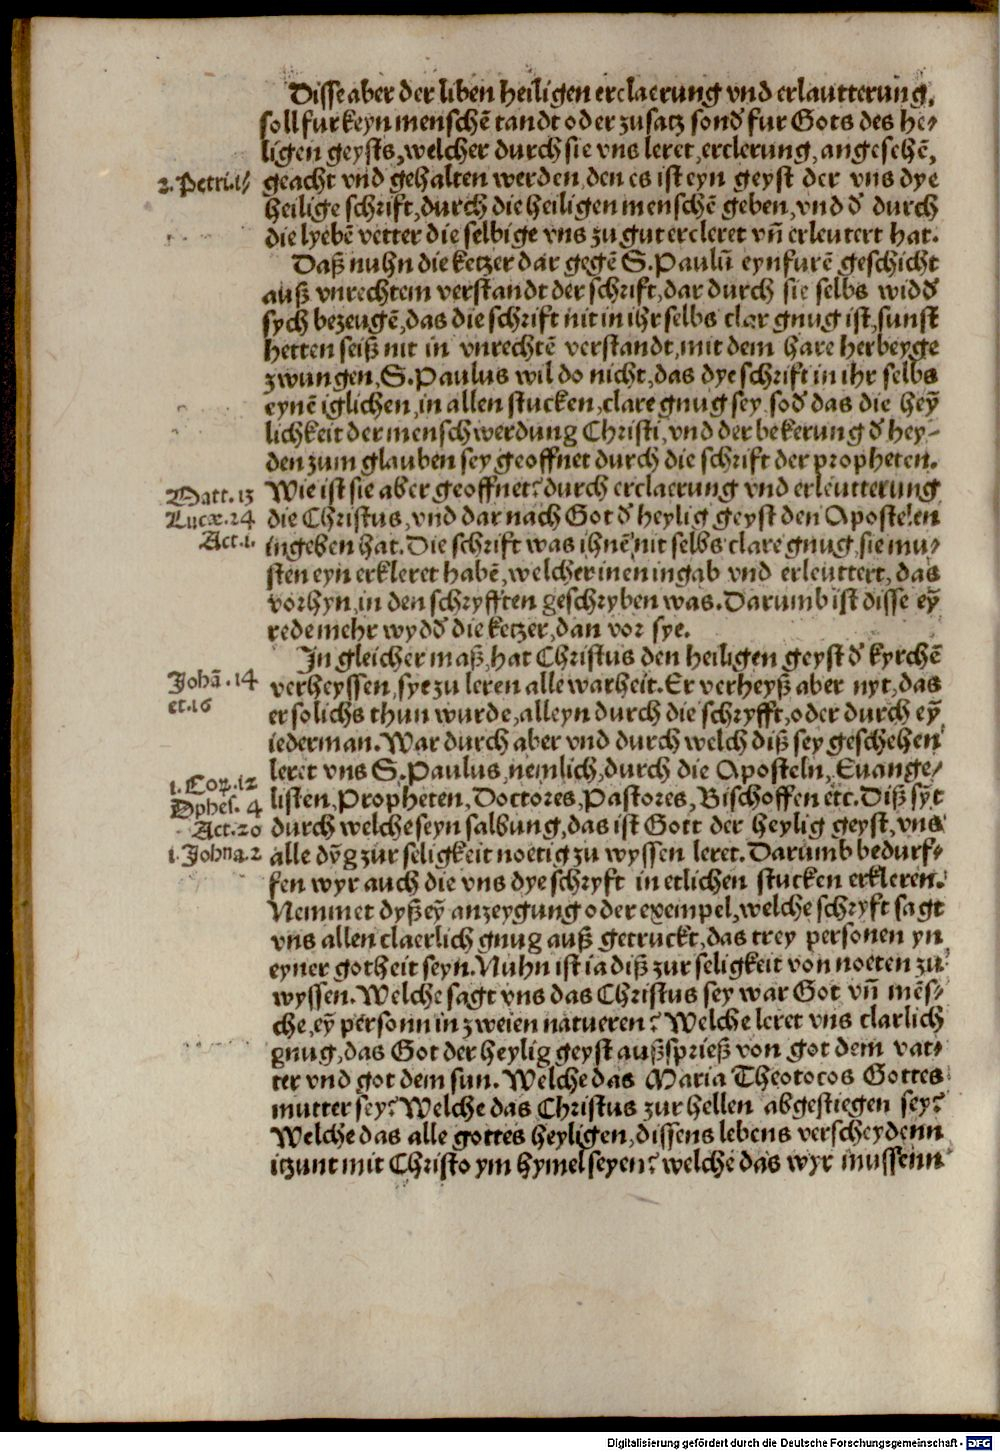 Disse aber der liben heiligen erclaerung vnd erlautterung,
soll fur keyn menschē tandt oder zusatz sond̛ fur Gots des he⸗
ligen geysts, welcher durch sie vns leret, erclerung, angesehē,
2. Petri. 1 geacht vnd gehalten werden, den es ist eyn geyst der vns dye
heilige schrift, durch die heiligen menschē geben, vnd d̛ durch
die lyebē vetter die selbige vns zu gut ercleret vñ erleutert hat.
Daß nuhn die ketzer dar gegē S. Paulū eynfurē geschicht
auß vnrechtem verstandt der schrift, dar durch sie selbs widd̛
sych bezeugē, das die schrift nit in ihr selbs clar gnug ist, sunst
hetten seiß nit in vnrechtē verstandt, mit dem hare herbeyge
zwungen, S. Paulus wil do nicht, das dye schrift in ihr selbs
eynē iglichen, in allen stucken, clare gnug sey sod̛ das die heȳ
lichkeit der menschwerdung Christi, vnd der bekerung d̛ hey⸗
den zum glauben sey geoffnet durch die schrift der propheten.
Matt. 13 Wie ist sie aber geoffnet? durch erclaerung vnd erleutterung
Lucæ. 24 die Christus, vnd dar nach Got d̛ heylig geyst den Apostelen
Act. 1. ingeben hat. Die schrift was ihnē nit selbs clare gnug, sie mu⸗
sten eyn erkleret habē, welcher inen ingab vnd erleuttert, das
vorhyn, in den schryfften geschryben was. Darumb ist disse eȳ
rede mehr wydd̛ die ketzer, dan vor sye.
In gleicher maß, hat Christus den heiligen geyst d̛ kyrchē
Johā. 14 verheyssen, sye zu leren alle warheit. Er verheyß aber nyt, das
et. 16 er solichs thun wurde, alleyn durch die schryfft, oder durch eȳ
iederman. War durch aber vnd durch welch diß sey geschehen
leret vns S. Paulus, nemlich, durch die Aposteln, Euange⸗
1. Cor. 12 listen, Propheten, Doctores, Pastores, Bischoffen etc. Diß sȳt
Ephes. 4
Act. 20 durch welche seyn salbung, das ist Gott der heylig geyst, vns
1. Johna. 2 alle dȳg zur seligkeit noetig zu wyssen leret. Darumb bedurf⸗
fen wyr auch die vns dye schryft in etlichen stucken erkleren.
Nemmet dyß eȳ anzeygung oder exempel, welche schryft sagt
vns allen claerlich gnug auß getruckt, das trey personen yn
eyner gotheit seyn. Nuhn ist ia diß zur seligkeit von noeten zu
wyssen. Welche sagt vns das Christus sey war Got vñ mēs⸗
che, eȳ personn in zweien natueren? Welche leret vns clarlich
gnug, das Got der heylig geyst außsprieß von got dem vat⸗
ter vnd got dem sun. Welche das Maria Theotocos Gottes
mutter sey? Welche das Christus zur hellen abgestiegen sey?
Welche das alle gottes heyligen, dissens lebens verscheydenn
itzunt mit Christo ym hymel seyen? welche das wyr mussenn
Digitalisierung gefördert durch die Deutsche Forschungsgemeinschaft - DFG